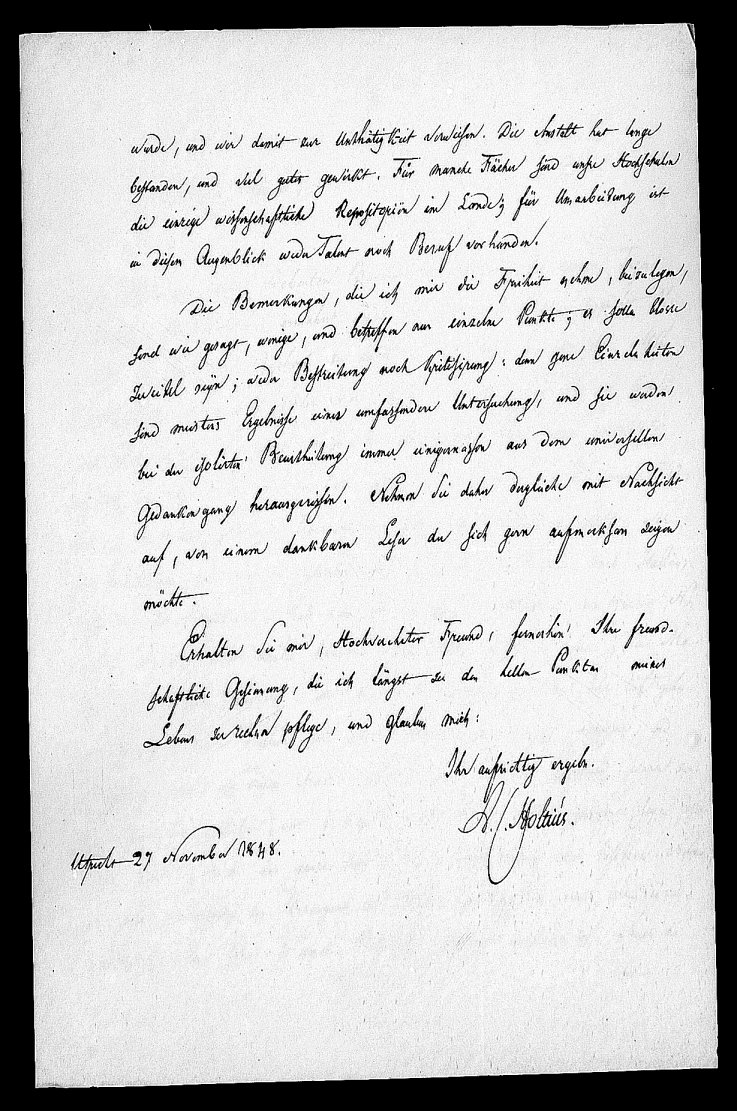 wurde, und wir damit zur Unthätigkeit verwiesen. Die Anstalt hat lange
bestanden, und viel gutes gewirkt. Für manche Fächer sind unsre Hochschulen
die einzige wissenschaftliche Repositorien im Lande; für Umarbeitung ist
in diesem Augenblick weder Talent noch Beruf vorhanden.
Die Bemerkungen, die ich mir die Freiheit nehme, beizulegen,
sind wie gesagt, wenige, und betreffen nur einzelne Punkte; es sollen blosse
Zweifel seyn; weder Bestreitung noch Kritisirung: denn jene Einzelheiten
sind meistens Ergebnisse einer umfassenden Untersuchung, und sie werden
bei der isolirten Beurtheilung immer einigermassen aus dem universellen
Gedankengang herausgerissen. Nehmen Sie daher dergleiche mit Nachsicht
auf, von einem dankbaren Leser der sich gern aufmerksam zeigen
möchte.
Erhalten Sie mir, Hochverehrter Freund, fernerhin Ihre freund-
schaftliche Gesinnung, die ich längst zu den hellen Punkten meines
Lebens zu rechnen pflege, und glauben mich:
Ihr aufrichtig ergebn.
A. C. Holtius.
Utrecht 27 November 1848.